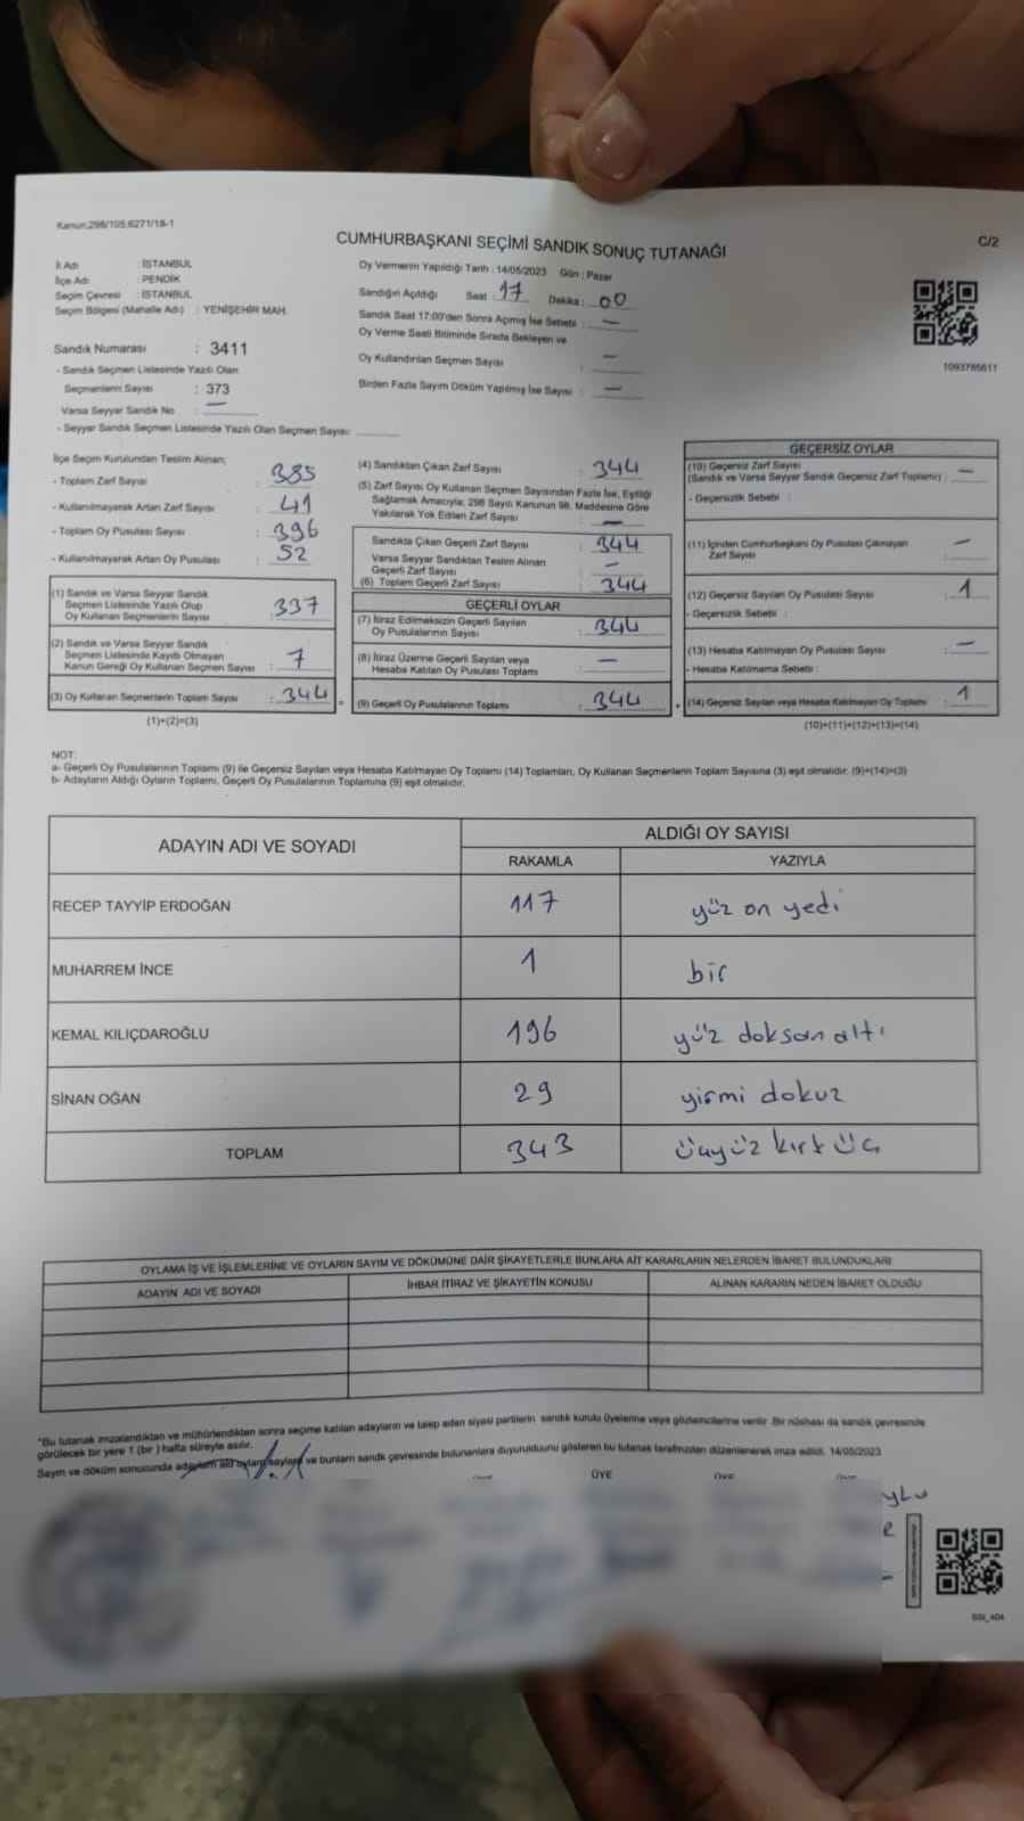 Kanun:298/105,6271/18-1
CUMHURBAŞKANI SEÇİMİ SANDIK SONUÇ TUTANAĞI
C/2
İl Adı : İSTANBUL
İlçe Adı : PENDİK
Seçim Çevresi : İSTANBUL
Seçim Bölgesi (Mahalle Adı) : YENİŞEHİR MAH.
Sandık Numarası : 3411
- Sandık Seçmen Listesinde Yazılı Olan
Seçmenlerin Sayısı : 373
Varsa Seyyar Sandık No : —
- Seyyar Sandık Seçmen Listesinde Yazılı Olan Seçmen Sayısı:
Oy Vermenin Yapıldığı Tarih : 14/05/2023 Gün : Pazar
Sandığın Açıldığı Saat : 17 Dakika : 00
Sandık Saat 17:00'den Sonra Açmış İse Sebebi : —
Oy Verme Saati Bitiminde Sırada Bekleyen ve
Oy Kullandırılan Seçmen Sayısı : —
Birden Fazla Sayım Döküm Yapılmış İse Sayısı : —
1093785611
İlçe Seçim Kurulundan Teslim Alınan;
- Toplam Zarf Sayısı : 385
- Kullanılmayarak Artan Zarf Sayısı : 41
- Toplam Oy Pusulası Sayısı : 396
- Kullanılmayarak Artan Oy Pusulası : 52
(1) Sandık ve Varsa Seyyar Sandık
Seçmen Listesinde Yazılı Olup
Oy Kullanan Seçmenlerin Sayısı : 337
(2) Sandık ve Varsa Seyyar Sandık
Seçmen Listesinde Kayıtlı Olmayan
Kanun Gereği Oy Kullanan Seçmen Sayısı : 7
(3) Oy Kullanan Seçmenlerin Toplam Sayısı : 344
(1)+(2)=(3)
(4) Sandıktan Çıkan Zarf Sayısı : 344
(5) Zarf Sayısı Oy Kullanan Seçmen Sayısından Fazla İse, Eşitliği
Sağlamak Amacıyla; 298 Sayılı Kanunun 98. Maddesine Göre
Yakılarak Yok Edilen Zarf Sayısı : —
Sandıkta Çıkan Geçerli Zarf Sayısı : 344
Varsa Seyyar Sandıktan Teslim Alınan
Geçerli Zarf Sayısı : —
(6) Toplam Geçerli Zarf Sayısı : 344
GEÇERLİ OYLAR
(7) İtiraz Edilmeksizin Geçerli Sayılan
Oy Pusulalarının Sayısı : 344
(8) İtiraz Üzerine Geçerli Sayılan veya
Hesaba Katılan Oy Pusulası Toplamı : —
(9) Geçerli Oy Pusulalarının Toplamı : 344
GEÇERSİZ OYLAR
(10) Geçersiz Zarf Sayısı
(Sandık ve Varsa Seyyar Sandık Geçersiz Zarf Toplamı) : —
- Geçersizlik Sebebi :
(11) İçinden Cumhurbaşkanı Oy Pusulası Çıkmayan
Zarf Sayısı : —
(12) Geçersiz Sayılan Oy Pusulası Sayısı : 1
- Geçersizlik Sebebi :
(13) Hesaba Katılmayan Oy Pusulası Sayısı : —
- Hesaba Katılmama Sebebi :
(14) Geçersiz Sayılan veya Hesaba Katılmayan Oy Toplamı : 1
(10)+(11)+(12)+(13)=(14)
NOT:
a- Geçerli Oy Pusulalarının Toplamı (9) ile Geçersiz Sayılan veya Hesaba Katılmayan Oy Toplamı (14) Toplamları, Oy Kullanan Seçmenlerin Toplam Sayısına (3) eşit olmalıdır. (9)+(14)=(3)
b- Adayların Aldığı Oyların Toplamı, Geçerli Oy Pusulalarının Toplamına (9) eşit olmalıdır.
ADAYIN ADI VE SOYADI
ALDIĞI OY SAYISI
RAKAMLA YAZIYLA
RECEP TAYYİP ERDOĞAN 117 yüz on yedi
MUHARREM İNCE 1 bir
KEMAL KILIÇDAROĞLU 196 yüz doksan altı
SİNAN OĞAN 29 yirmi dokuz
TOPLAM 343 üçyüz kırk üç
OYLAMA İŞ VE İŞLEMLERİNE VE OYLARIN SAYIM VE DÖKÜMÜNE DAİR ŞİKAYETLERLE BUNLARA AİT KARARLARIN NELERDEN İBARET BULUNDUKLARI
ADAYIN ADI VE SOYADI İHBAR İTİRAZ VE ŞİKAYETİN KONUSU ALINAN KARARIN NEDEN İBARET OLDUĞU
"Bu tutanak imzalandıktan ve mühürlendikten sonra seçime katılan adayların ve talep eden siyasi partilerin sandık kurulu üyelerine veya gözlemcilerine verilir. Bir nüshası da sandık çevresinde
görülecek bir yere 1 (bir) hafta süreyle asılır.
Sayım ve döküm sonucunda adayların aldığı oyların sayıları ve bunların sandık çevresinde bulunanlara duyurulduunu gösteren bu tutanak tarafımızdan düzenlenerek imza edildi. 14/05/2023
ÜYE ÜYE